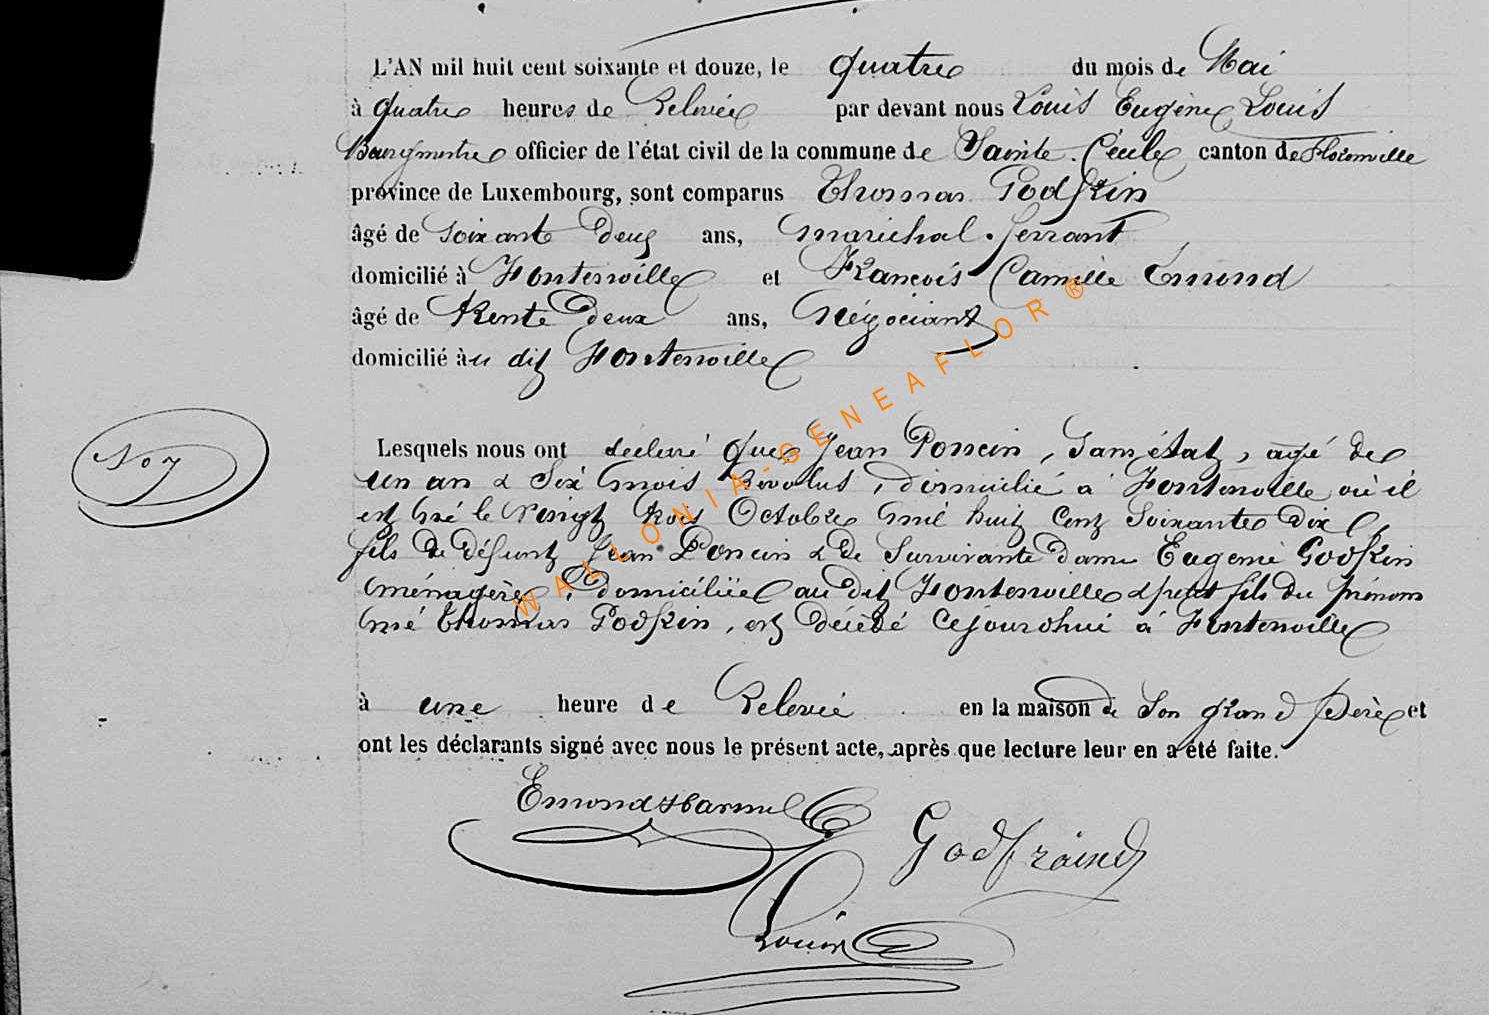 L'AN mil huit cent soixante et douze, le quatre du mois de Mai
à quatre heures de Relevée par devant nous Louis Eugène Louis
Bourgmestre officier de l'état civil de la commune de Sainte-Cécile canton de Florenville
province de Luxembourg, sont comparus Thomas Godfrin
âgé de soixante deux ans, maréchal-ferrant
domicilié à Fontenoille et François Camille Emond
âgé de trente deux ans, Négociant
domicilié au dit Fontenoille
Lesquels nous ont déclaré que Jean Poncin, Sans état, agé de
un an & Six mois Révolus, domicilié à Fontenoille où il
est né le Vingt trois Octobre mil huit cent Soixante dix,
fils de défunt Jean Poncin & de Survivante dame Eugenie Godfrin
ménagère, domiciliée au dit Fontenoille & petit fils du prénom
mé Thomas Godfrin, est décédé cejourdhui à Fontenoille
à une heure de Relevée en la maison de Son grand Père et
ont les déclarants signé avec nous le présent acte, après que lecture leur en a été faite.
No 7
Emond Godfraind
Louis
WALLONIA-GENEAFLOR ®